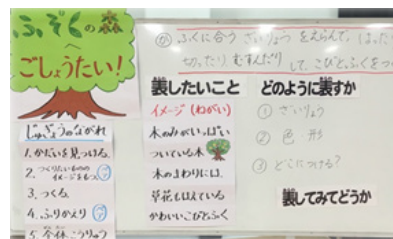 ふぞくの森へ
ごしょうたい!
じゅぎょうのながれ
1.かだいを見つける。
2.つくりたいものの
イメージをもつ ペア
3.つくる。
4.ふりかえり ペア
5.全体こうりゅう
か ふくに合う ざいりょう をえらんで、はったり
切ったり むすんだり して、こびとふくをつ
表したいこと
イメージ(ねがい)
木のみがいっぱい
ついている木
木のまわりには、
草花もはえている
かわいいこびとふく
どのように表すか
① ざいりょう
② 色・形
③ どこにつける?
表してみてどうか